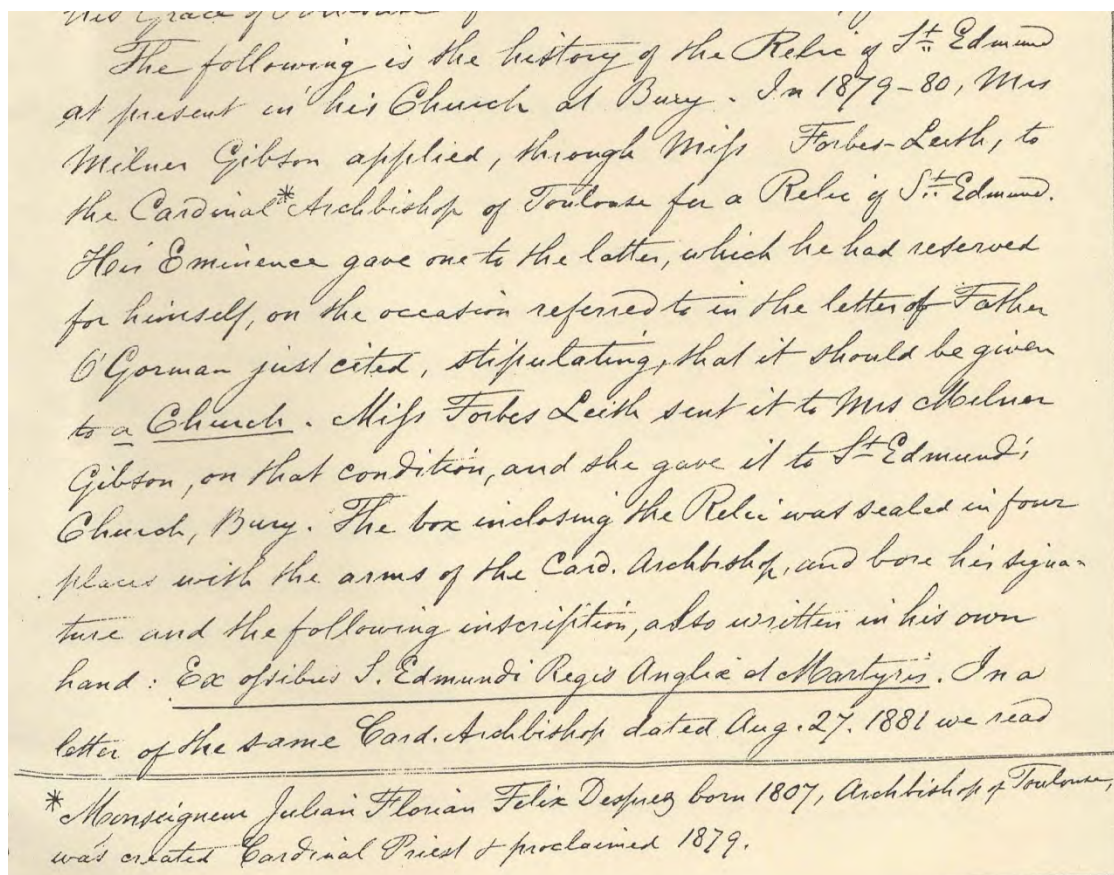 his Grace of
The following is the history of the Relic of St. Edmund
at present in his Church at Bury. In 1879-80, Mrs
Milner Gibson applied, through Miss Forbes-Leith, to
the Cardinal * Archbishop of Toulouse for a Relic of St. Edmund.
His Eminence gave one to the latter, which he had reserved
for himself, on the occasion referred to in the letter of Father
O'Gorman just cited, stipulating, that it should be given
to a Church. Miss Forbes Leith sent it to Mrs Milner
Gibson, on that condition, and she gave it to St Edmund's
Church, Bury. The box inclosing the Relic was sealed in four
places with the arms of the Card. Archbishop, and bore his signa-
ture and the following inscription, also written in his own
hand: Ex ossibus S. Edmundi Regis Angliæ et Martyris. In a
letter of the same Card. Archbishop dated Aug. 27. 1881 we read
* Monseigneur Julian Florian Felix Desprez born 1807, Archbishop of Toulouse,
was created Cardinal Priest & proclaimed 1879.